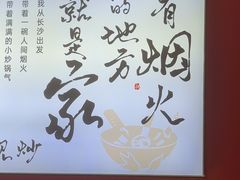 有烟火
的地方
就是家
我从长沙出发
带着一碗人间烟火
带着满满的小炒锅气